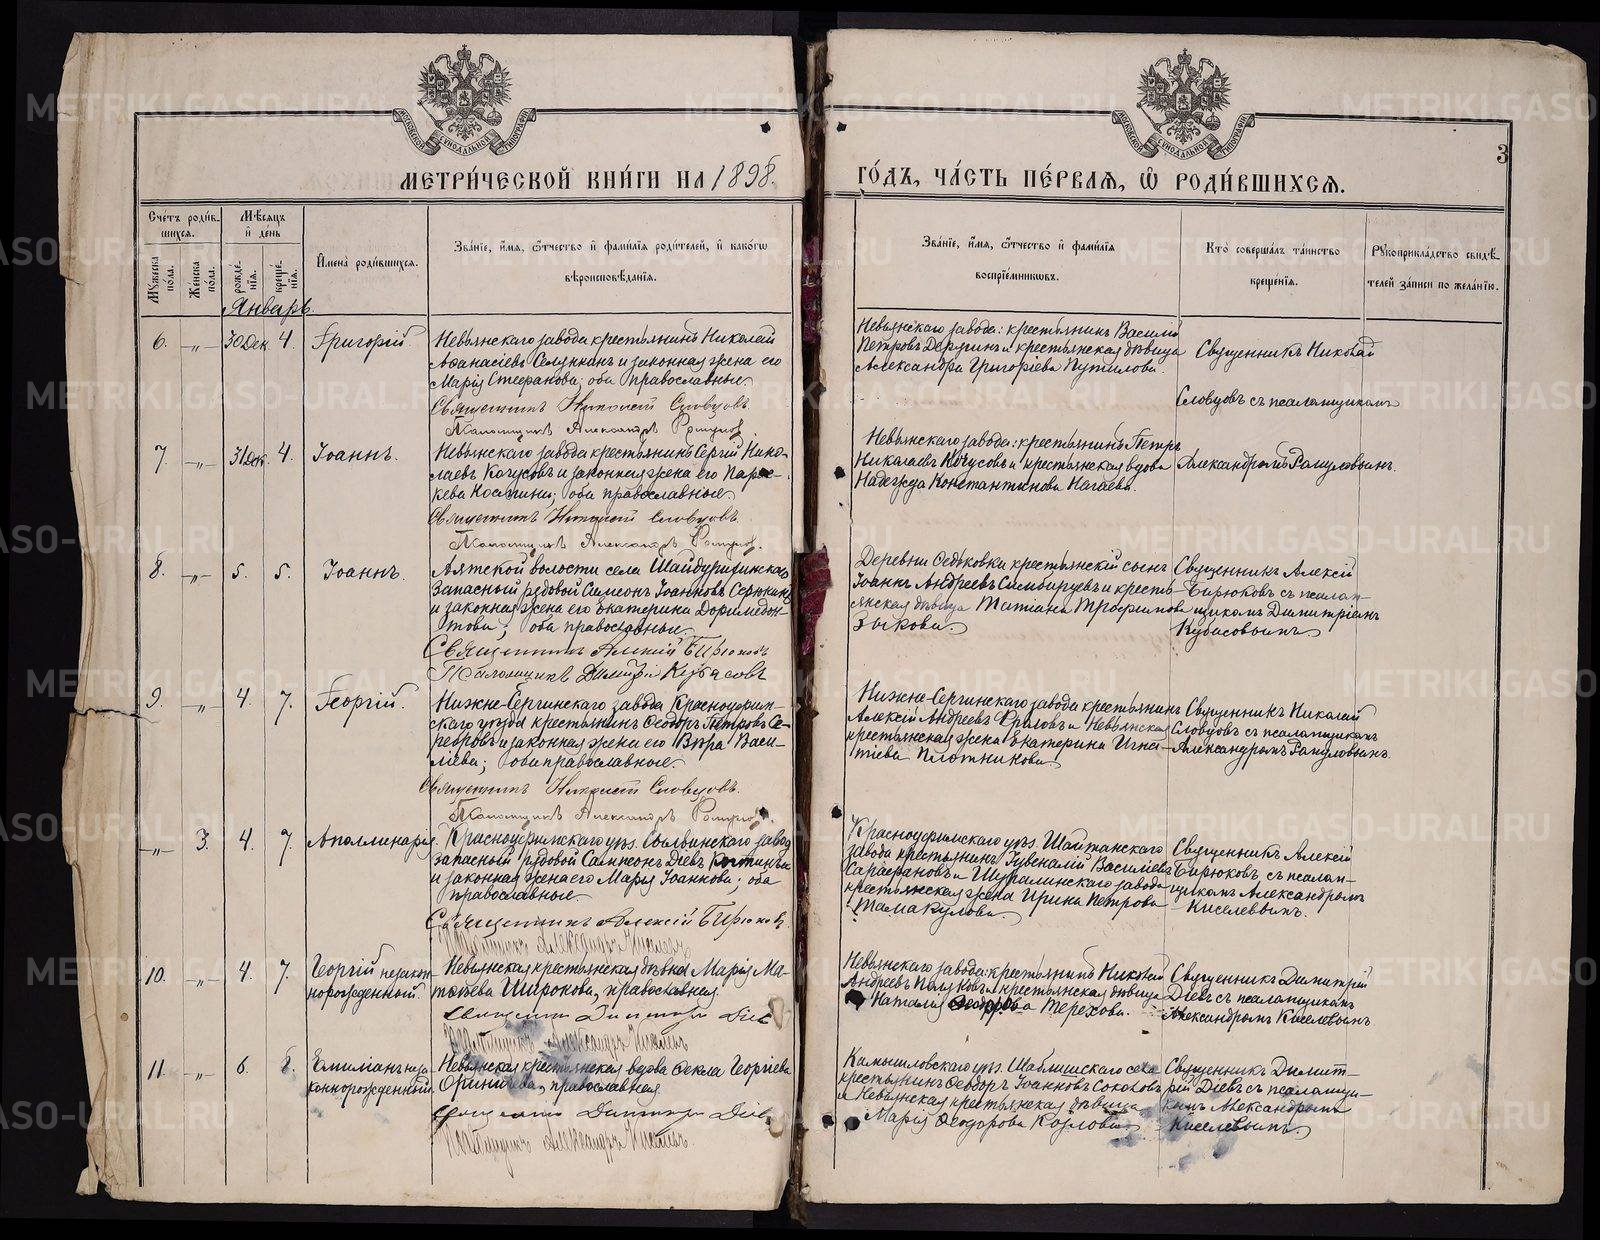 МЕТРИ́ЧЕСКОЙ КНИ́ГИ НА 1898.
ГО́ДЪ, ЧА́СТЬ ПЕ́РВАЯ, Ѡ҆ РОДИ́ВШИХСЯ.
3
Сче́тъ роди́в-
шихся.
Мѣ́сяцъ
и҆ де́нь
Му́жеска по́ла.
Же́нска по́ла.
рожде́-
нїя.
креще́-
нїя.
И҆мена̀ роди́вшихся.
Зва́нїе, и҆́мя, ѻ҆́тчество и҆ фами́лїя роди́телей, и҆ како́гѡ
вѣроисповѣ́данїя.
Зва́нїе, и҆́мя, ѻ҆́тчество и҆ фами́лїя
воспрїе́мниковъ.
Кто̀ соверша́лъ та́инство
креще́нїя.
Рꙋкоприкла́дство свидѣ́-
телей за́писи по жела́нїю.
Январь.
6. -"- 30 Дек. 4. Григорій.
Невьянскаго завода крестьянинъ Николай
Аѳанасіевъ и законная жена его
Марія Стефанова; оба православные.
Священникъ Николай Словцовъ
Псаломщикъ Александръ
Невьянскаго завода: крестьянинъ Василій
Петровъ и крестьянская дѣвица
Александра Григоріева Путилова.
Священникъ Николай
Словцовъ съ псаломщикомъ
7. -"- 31 Дек. 4. Іоаннъ.
Невьянскаго завода крестьянинъ Сергій Нико-
лаевъ Кочусовъ и законная жена его Парас-
кева Космина; оба православные.
Священникъ Николай Словцовъ
Псаломщикъ Александръ
Невьянскаго завода: крестьянинъ Петръ
Николаевъ Кочусовъ и крестьянская вдова
Надежда Константинова Нагаева.
Александромъ
8. -"- 5. 5. Іоаннъ.
Аятской волости села Шайдурихинскаго
Запасный рядовой Симеонъ Іоанновъ
и законная жена его Екатерина Доримедон-
това; оба православные.
Священникъ Алексій Бирюковъ
Псаломщикъ Димитрій Кубасовъ
Деревни Ѳедьковки крестьянскій сынъ
Іоаннъ Андреевъ и кресть-
янская дѣвица Татіана Трофимова
Зыкова.
Священникъ Алексій
Бирюковъ съ псалом-
щикомъ Димитріемъ
Кубасовымъ
9. -"- 4. 7. Георгій.
Нижне-Сергинскаго завода Красноуфим-
скаго уѣзда крестьянинъ Ѳеодоръ Петровъ
и законная жена его Вѣра Васи-
лиева; оба православные.
Священникъ Николай Словцовъ.
Псаломщикъ Александръ
Нижне-Сергинскаго завода крестьянинъ
Алексій Андреевъ Фроловъ и Невьянская
крестьянская жена Екатерина Игна-
тіева Плотникова.
Священникъ Николай
Словцовъ съ псаломщикомъ
Александромъ
-"- 3. 4. 7. Аполлинарія.
Красноуфимскаго уѣз. Сылвинскаго завод.
запасный рядовой Сампсонъ Діевъ
и законная жена его Марія Іоаннова; оба
православные.
Священникъ Алексій Бирюковъ
Псаломщикъ Александръ Киселевъ
Красноуфимскаго уѣз. Шайтанскаго
завода крестьянинъ Іувеналій Василіевъ
Сарафановъ и Шуралинскаго завода
крестьянская жена Ирина Петрова
Тамакулова.
Священникъ Алексій
Бирюковъ съ псалом-
щикомъ Александромъ
Киселевымъ.
10. -"- 4. 7. Георгій незакон-
норожденный.
Невьянская крестьянская дѣвка Марія Ма-
тѳеева Широкова, православная.
Священникъ Димитрій Діевъ
Псаломщикъ Александръ Киселевъ
Невьянскаго завода: крестьянинъ Николай
Андреевъ и крестьянская дѣвица
Наталія Ѳеодорова Терехова.
Священникъ Димитрій
Діевъ съ псаломщикомъ
Александромъ Киселевымъ.
11. -"- 6. 8. Емиліанъ неза-
коннорожденный.
Невьянская крестьянская вдова Ѳекла Георгіева
православная.
Священникъ Димитрій Діевъ
Псаломщикъ Александръ Киселевъ
Камышловскаго уѣз. Шаблишскаго села
крестьянинъ Ѳеодоръ Іоанновъ Соколовъ
и Невьянская крестьянская дѣвица
Марія Ѳеодорова Козлова.
Священникъ Димит-
рій Діевъ съ псаломщи-
комъ Александромъ
Киселевымъ.
METRIKI.GASO-URAL.RU